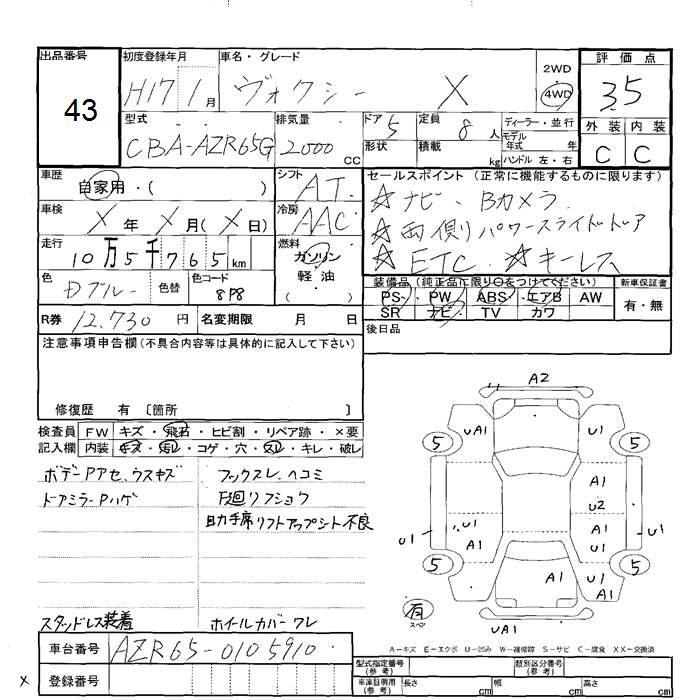 出品番号 初度登録年月 車名・グレード 評価点
43 H17年 1月 ヴォクシー X 2WD 4WD 3.5
型式 排気量 ドア 5 定員 8人 ディーラー・並行 外装 内装
CBA-AZR65G 2000cc 形状 積載 kg モデル年式 年 ハンドル 左・右 C C
車歴 自家用・( ) シフト AT セールスポイント (正常に機能するものに限ります)
☆ナビ、Bカメラ
車検 X年 X月(X日) 冷房 AAC ☆両側パワースライドドア
走行 10万5千765km 燃料 ガソリン 軽油 ☆ETC ☆キーレス
色 Dブルー 色替 色コード 8P8 装備品 (純正品に限り○をつけてください) 新車保証書
PS PW ABS エアB AW 有・無
SR ナビ TV カワ
R券 12,730円 名変期限 月 日 後日品
注意事項申告欄(不具合内容等は具体的に記入して下さい)
修復歴 有 〔箇所 〕
検査員 FW キズ・飛石・ヒビ割・リペア跡・X要
記入欄 内装 キズ・汚レ・コゲ・穴・スレ・キレ・破レ
ボデーPアセ、ウスキズ フックスレ、ヘコミ
ドアミラーPハゲ 下廻リフショク
助手席リフトアップシート不良
スタッドレス装着 ホイールカバーワレ
A2
UA1 U1
5 5
A1
U2
U1 U1 A1 A1 U1 U1
5 5
A1 U1 A1
有
スペア
UA1
A-キズ E-エクボ U-凹み W-補修跡 S-サビ C-腐食 XX-交換済
車台番号 AZR65-0105910
型式指定番号(参考) 類別区分番号(参考)
x 登録番号 車庫証明用(参考) 長さ cm 幅 cm 高さ cm